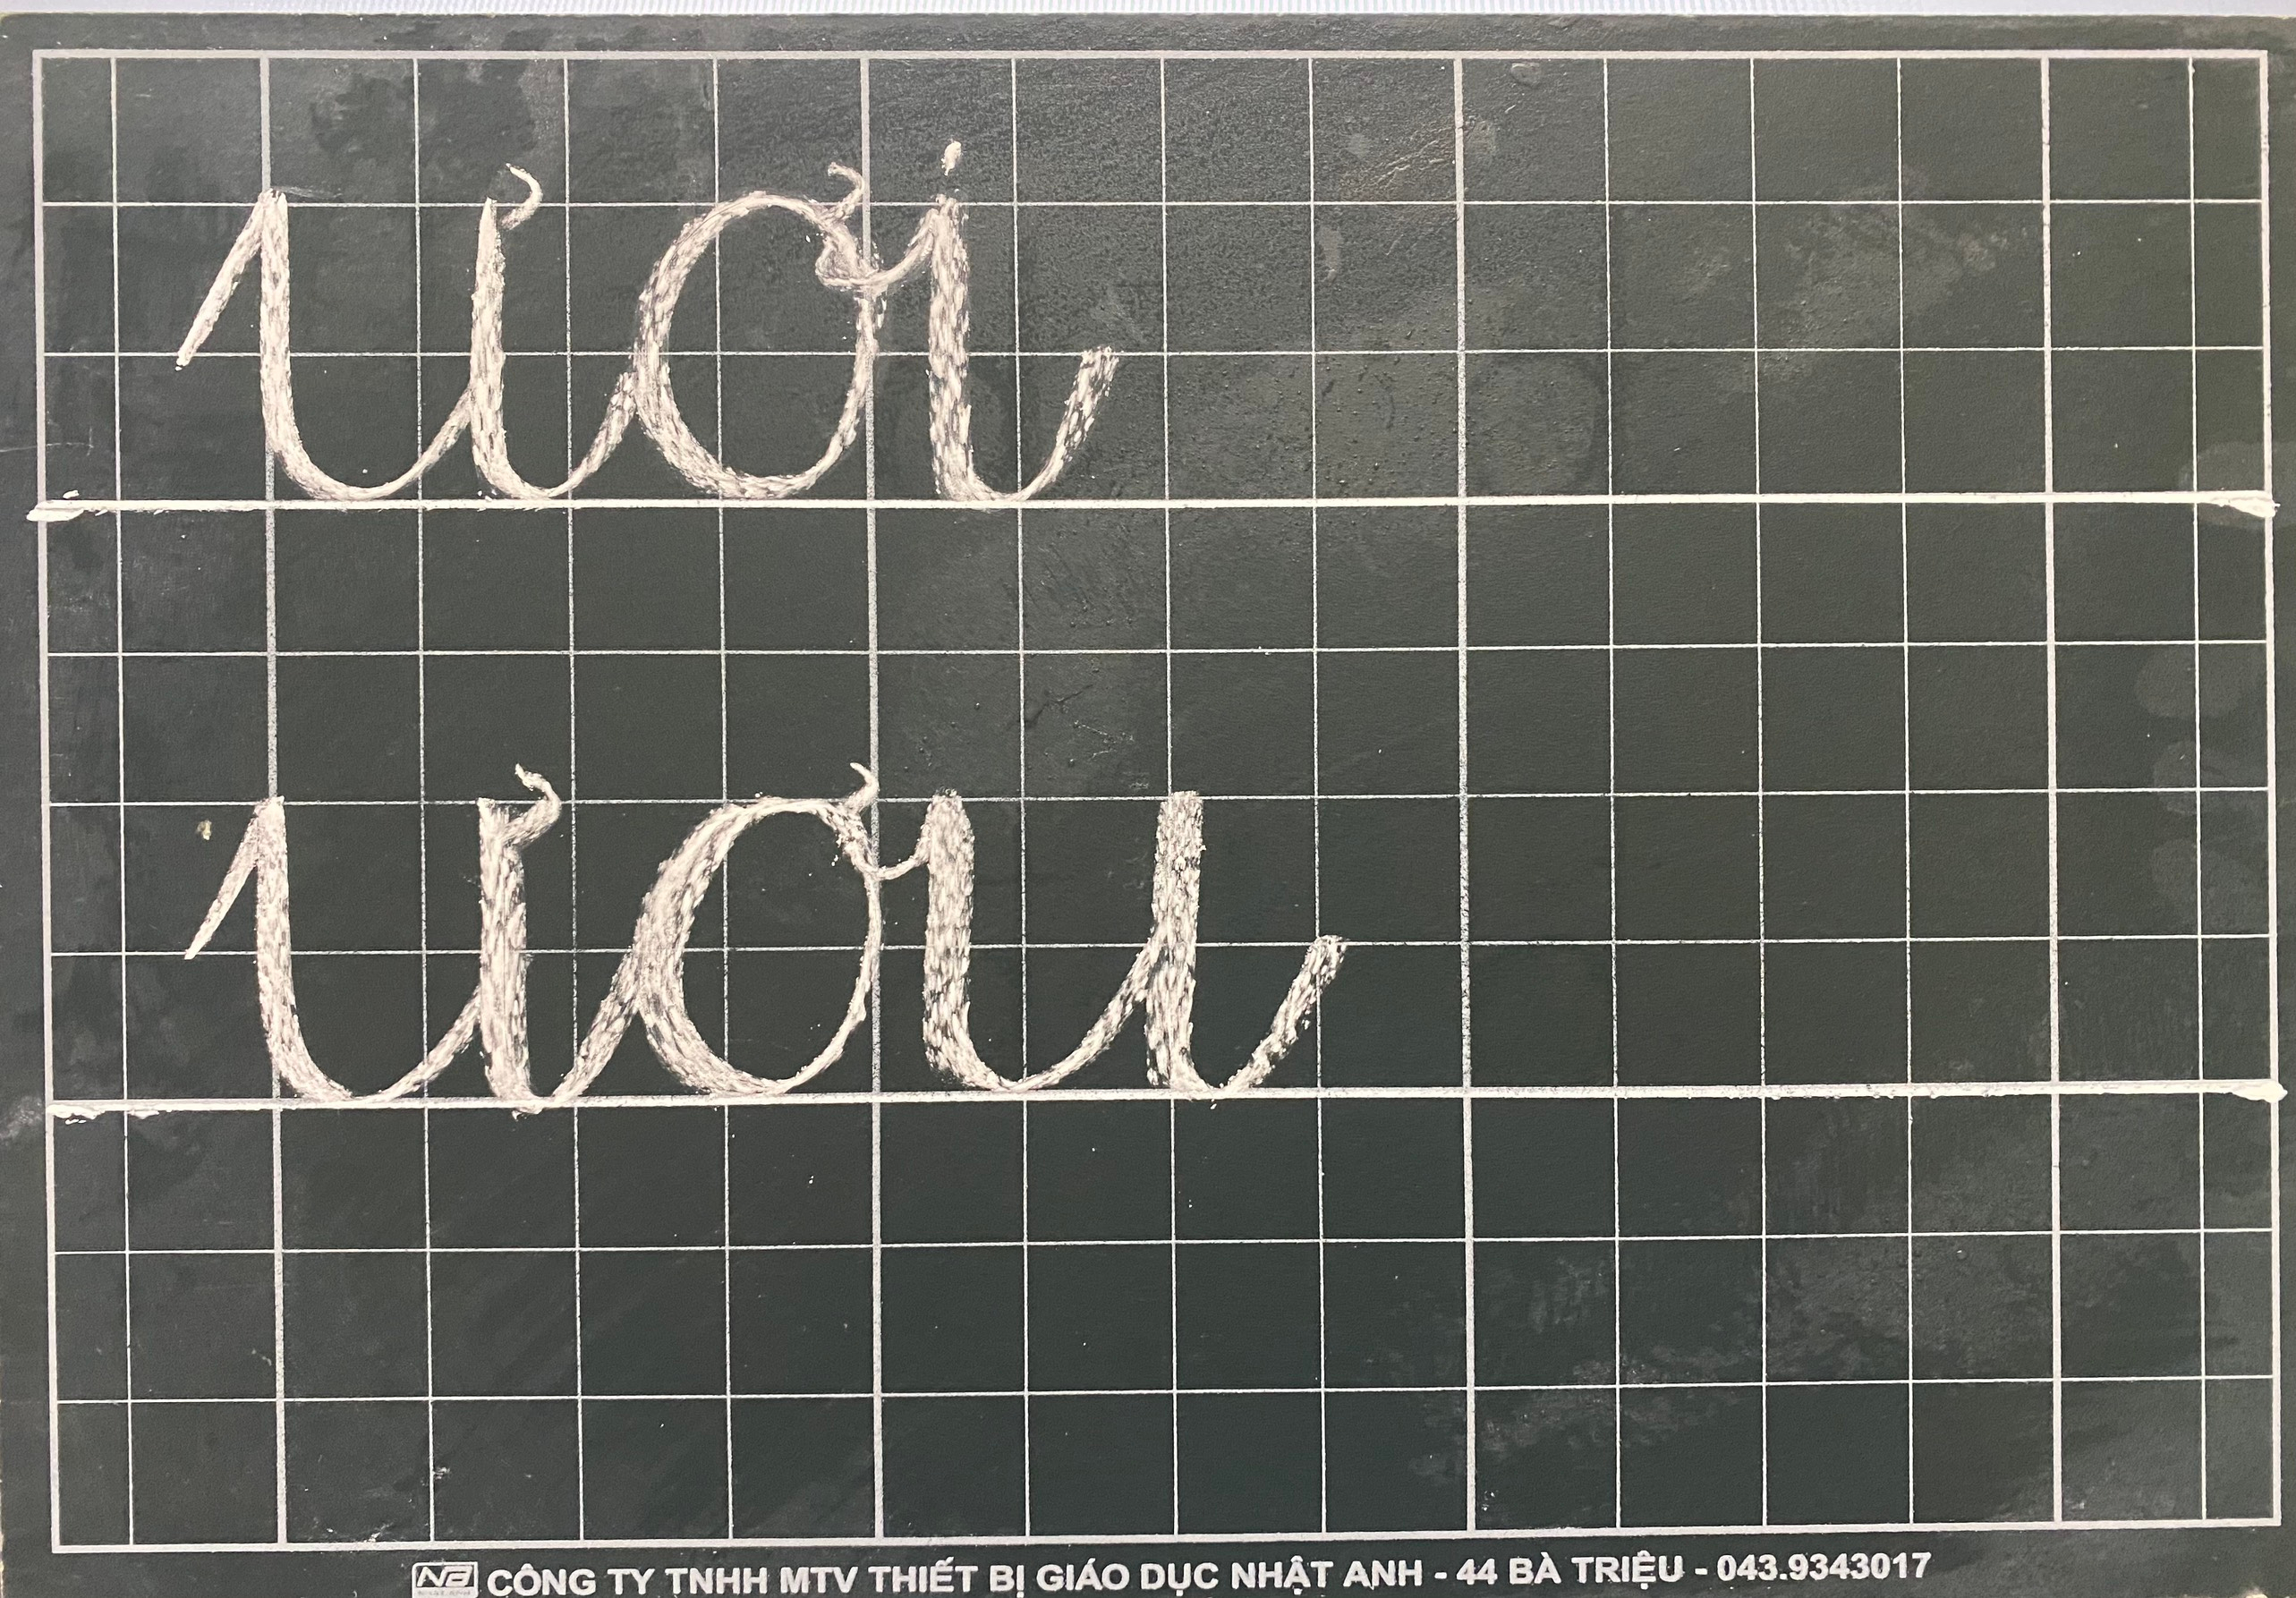 ươi
ươu
NA CÔNG TY TNHH MTV THIẾT BỊ GIÁO DỤC NHẬT ANH - 44 BÀ TRIỆU - 043.9343017